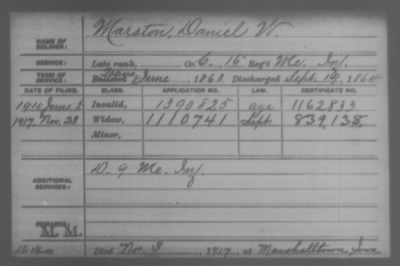 NAME OF SOLDIER: Marston, Daniel W.
SERVICE: Late rank, Co. C, 16 Reg't Me. Inf.
TERM OF SERVICE: Enlisted June 1863 Discharged Sept. 19, 1864
DATE OF FILING. CLASS. APPLICATION NO. LAW. CERTIFICATE NO.
1910 June 8 Invalid, 1390825 age 1162833
1917 Nov. 23 Widow, 1110741 Sept 839,138
Minor,
ADDITIONAL SERVICES: D. 9 Me. Inf.
REMARKS:
M. M.
Died Nov. 3, 1917, at Marshalltown, Iowa